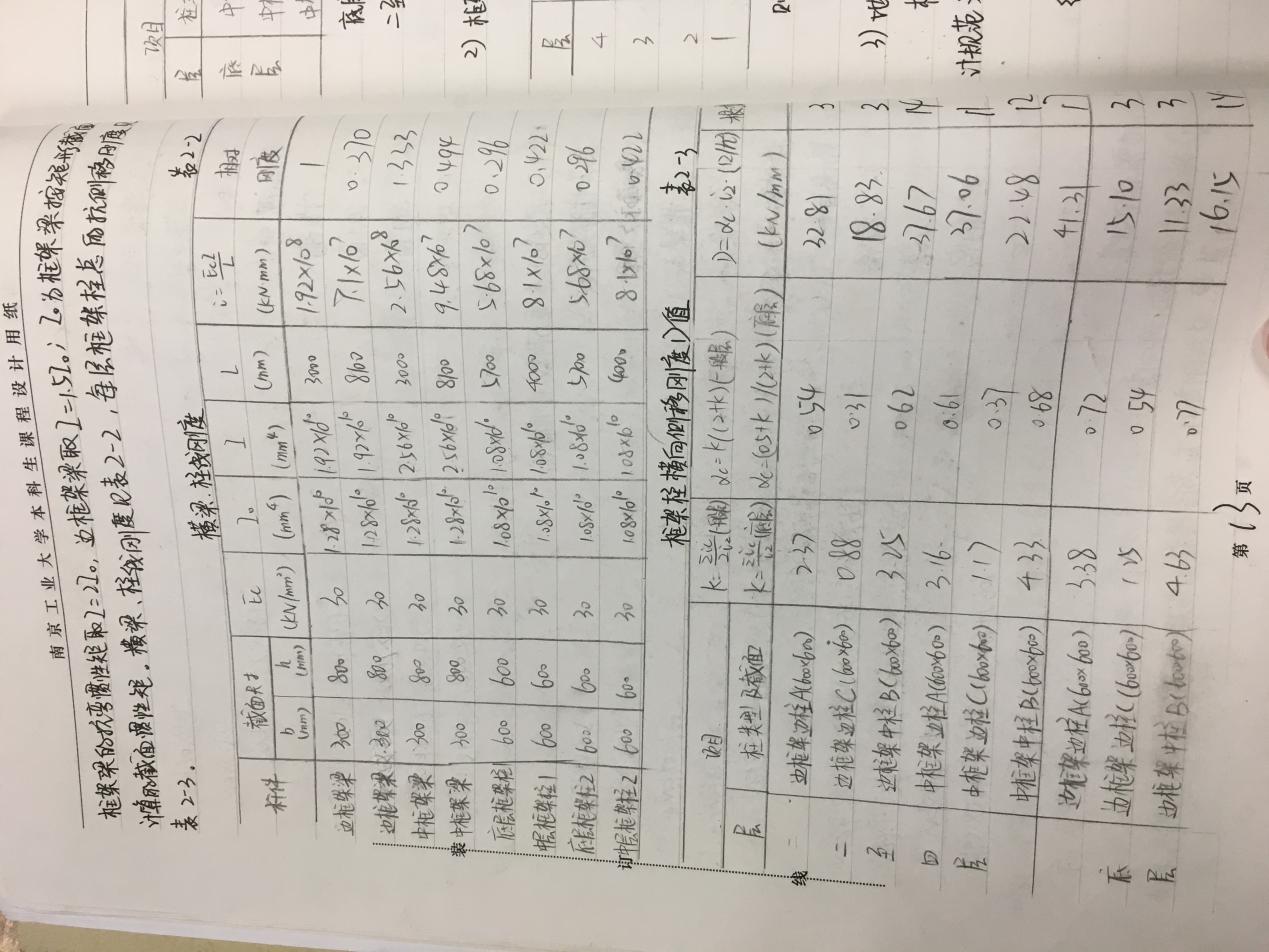 南京工业大学本科生课程设计用纸
框架梁的抗弯惯性矩取I=2I₀，边框架梁取I=1.5I₀；I₀为框架梁按矩形截面
计算的截面惯性矩。横梁、柱线刚度见表2-2，每层框架柱总的抗侧移刚度见
表2-3。
横梁、柱线刚度 表2-2
杆件 截面尺寸 Ec I₀ I L i=EcI/L 相对
b (mm) h (mm) (kN/mm²) (mm⁴) (mm⁴) (mm) (kN·mm) 刚度
边框架梁 300 800 30 1.28×10¹⁰ 1.92×10¹⁰ 3000 1.92×10⁸ 1
边框架梁 300 800 30 1.28×10¹⁰ 1.92×10¹⁰ 8100 7.1×10⁷ 0.370
中框架梁 300 800 30 1.28×10¹⁰ 2.56×10¹⁰ 3000 2.56×10⁸ 1.333
中框架梁 300 800 30 1.28×10¹⁰ 2.56×10¹⁰ 8100 9.48×10⁷ 0.494
底层框架柱1 600 600 30 1.08×10¹⁰ 1.08×10¹⁰ 5700 5.68×10⁷ 0.296
中层框架柱1 600 600 30 1.08×10¹⁰ 1.08×10¹⁰ 4000 8.1×10⁷ 0.422
底层框架柱2 600 600 30 1.08×10¹⁰ 1.08×10¹⁰ 5700 5.68×10⁷ 0.296
中层框架柱2 600 600 30 1.08×10¹⁰ 1.08×10¹⁰ 4000 8.1×10⁷ 0.422
框架柱横向侧移刚度D值 表2-3
项目 K=Σic/2iz(一般层) αc=K/(2+K)(一般层) D=αc·iz·(12/h²) 根
层 柱类型及截面 K=Σic/iz(底层) αc=(0.5+K)/(2+K)(底层) (kN/mm)
二 边框架边柱A(600×600) 2.37 0.54 32.81 3
二 边框架边柱C(600×600) 0.88 0.31 18.83 3
至 边框架中柱B(600×600) 3.25 0.62 37.67 14
四 中框架边柱A(600×600) 3.16 0.61 37.06 11
层 中框架边柱C(600×600) 1.17 0.37 22.48 12
中框架中柱B(600×600) 4.33 0.68 41.31 17
边框架边柱A(600×600) 3.38 0.72 15.10 3
底 边框架边柱C(600×600) 1.25 0.54 11.33 3
层 边框架中柱B(600×600) 4.63 0.77 16.15 14
装
订
线
第13页
项目
层 柱
底 中
层 中柱
中
底
二至
2) 框
层
4
3
2
1
3) 地
计规范